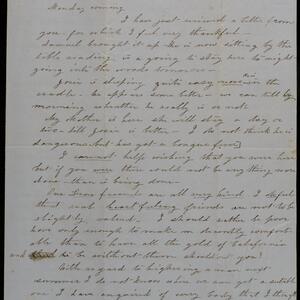 Monday evening
I have just received a letter from
you for which I feel very thankful —
Samuel brought it up he is now sitting by the
table reading, is a going to stay here to night
going into the woods tomorrow —
Josie is sleeping quite easy now in the
cradle — he appears some better — we can tell by
morning whether he really is or not
My Mother is here she will stay a day or
two till Josie is better — I do not think he is
dangerous but has got a lung fever
I cannot help wishing that you were here
but if you were there could not be any thing more
done than is being done —
Our Irasburg friends are all very kind, I defy
that such heart feeling friends are not to be
slightly valued. I should rather be poor
have only enough to make us decently comfort-
able than to have all the gold of California
and to be without them should n't you?
With regard to highering a man next
summer I do not know where we can get a suitable
one I have enquired of every body that I thought